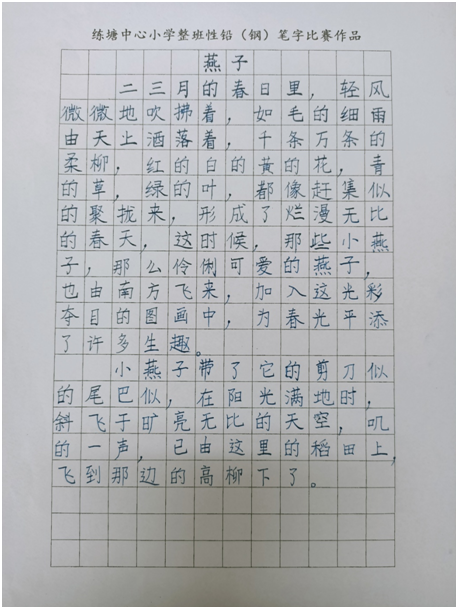 练塘中心小学整班性铅（钢）笔字比赛作品
燕子
二三月的春日里，轻风
微微地吹拂着，如毛的细雨
由天上洒落着，千条万条的
柔柳，红的白的黄的花，青
的草，绿的叶，都像赶集似
的聚拢来，形成了烂漫无比
的春天，这时候，那些小燕
子，那么伶俐可爱的燕子，
也由南方飞来，加入这光彩
夺目的图画中，为春光平添
了许多生趣。
小燕子带了它的剪刀似
的尾巴似，在阳光满地时，
斜飞于旷亮无比的天空，叽
的一声，已由这里的稻田上，
飞到那边的高柳下了。